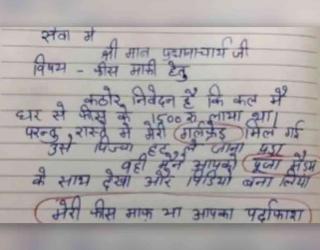 सेवा में
श्री मान प्रधानाचार्य जी
विषय - फीस माफी हेतु
कठोर निवेदन है कि कल मैं
घर से फीस के 1500 रु लाया था।
परन्तु रास्ते में मेरी गर्लफ्रेंड मिल गई
उसे पिज्जा हट ले जाना पड़ा
वही मैंने आपको पूजा मैडम
के साथ देखा और विडियो बना लिया
मेरी फीस माफ या आपका पर्दाफाश